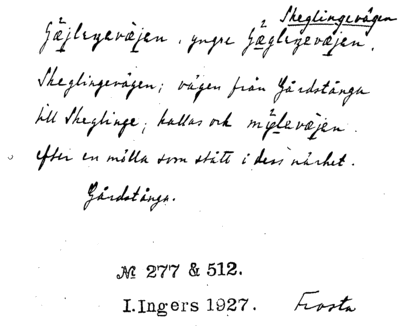 Skeglingevägen
yngre
Skeglingevägen; vägen från Gårdstånga
till Skeglinge; kallas och
efter en mölla som stått i dess närhet.
Gårdstånga.
№ 277 & 512.
I. Ingers 1927. Frosta